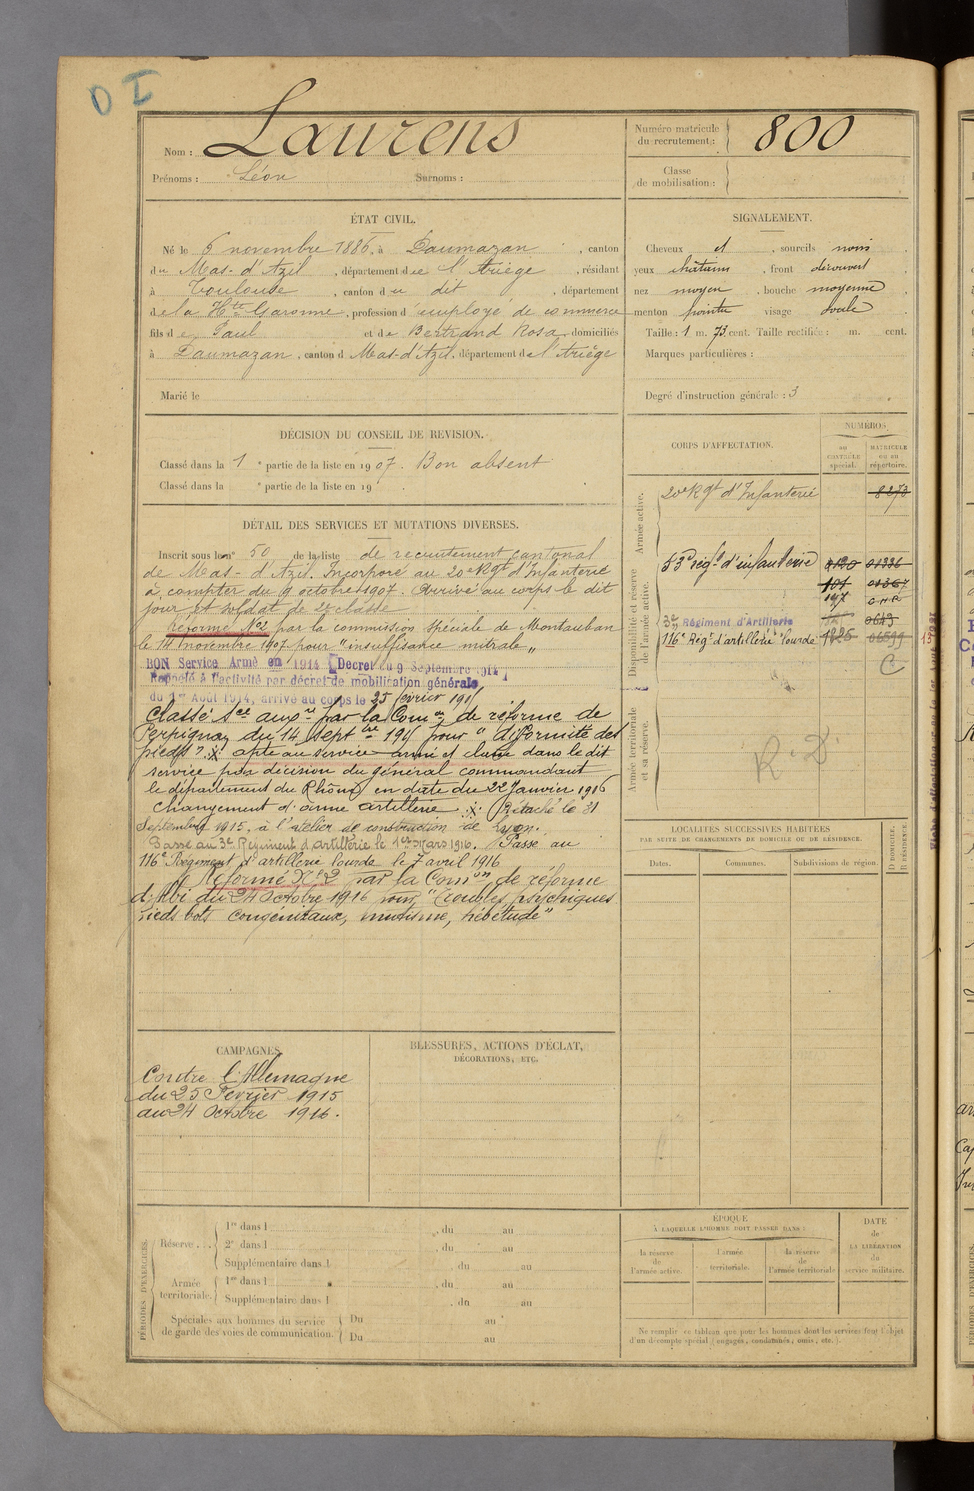 O I
Nom : Laurens
Prénoms : Léon Surnoms :
Numéro matricule
du recrutement : 800
Classe
de mobilisation :
ÉTAT CIVIL.
Né le 6 novembre 1886, à Daumazan, canton
du Mas-d'Azil, département de l'Ariège, résidant
à Toulouse, canton du dit, département
de la Hte Garonne, profession d'employé de commerce
fils de Paul et de Bertrand Rosa, domiciliés
à Daumazan, canton d Mas-d'Azil, département de l'Ariège
Marié le
SIGNALEMENT.
Cheveux et, sourcils noirs
yeux chatains, front découvert
nez moyen, bouche moyenne
menton pointu visage ovale
Taille : 1 m. 73 cent. Taille rectifiée : m. cent.
Marques particulières :
Degré d'instruction générale : 3
DÉCISION DU CONSEIL DE REVISION.
Classé dans la 1 e partie de la liste en 1907. Bon absent
Classé dans la e partie de la liste en 19 .
DÉTAIL DES SERVICES ET MUTATIONS DIVERSES.
Inscrit sous le n° 50 de la liste de recrutement cantonal
de Mas-d'Azil. Incorporé au 20e Rgt d'Infanterie
à compter du 9 octobre 1907. Arrivé au corps le dit
jour et soldat de 2e classe
Réformé N°2 par la commission spéciale de Montauban
le 14 novembre 1907 pour "insuffisance mitrale"
BON Service Armé en 1914 [Decret du 9 Septembre 1914]
Rappelé à l'activité par décret de mobilisation générale
du 1er Août 1914, arrivé au corps le 25 février 191
Classé Sce auxre par la Comon de réforme de
Perpignan du 14 septbre 191 pour "difformité des
pieds". apte au service armé et classé dans le dit
service par décision du général commandant
le département du Rhône en date du 22 Janvier 1916
Changement d'arme artillerie. Détaché le 21
Septembre 1915, à l'atelier de construction de Lyon.
Passé au 3e Régiment d'Artillerie le 1er Mars 1916. Passé au
116e Régiment d'artillerie lourde le 7 avril 1916
Réformé N°2 par la Comon de réforme
d'Albi du 24 Octobre 1916 pour "troubles psychiques
pieds bots congénitaux, mutisme, hébétude"
CORPS D'AFFECTATION.
NUMÉROS
au
CONTRÔLE
spécial.
MATRICULE
ou au
répertoire.
Armée active.
20e Rgt d'Infanterie 8273
Disponibilité et réserve
de l'armée active.
53e régt d'infanterie
3e Régiment d'Artillerie
116e Régt d'artillerie lourde
C
Armée territoriale
et sa réserve.
R. D
LOCALITÉS SUCCESSIVES HABITÉES
PAR SUITE DE CHANGEMENTS DE DOMICILE OU DE RÉSIDENCE.
Dates. Communes. Subdivisions de région.
D DOMICILE.
R RÉSIDENCE.
CAMPAGNES.
Contre l'Allemagne
du 25 Février 1915
au 24 Octobre 1916.
BLESSURES, ACTIONS D'ÉCLAT,
DÉCORATIONS, ETC.
PÉRIODES D'EXERCICES.
Réserve . . .
1re dans l , du au
2e dans l , du au
Supplémentaire dans l , du au
Armée
territoriale.
1re dans l , du au
Supplémentaire dans l , du au
Spéciales aux hommes du service
de garde des voies de communication.
Du au
Du au
ÉPOQUE
À LAQUELLE L'HOMME DOIT PASSER DANS :
la réserve
de
l'armée active.
l'armée
territoriale.
la réserve
de
l'armée territoriale
DATE
de
LA LIBÉRATION
du
service militaire.
Ne remplir ce tableau que pour les hommes dont les services font l'objet
d'un décompte spécial (engagés, condamnés, omis, etc.).